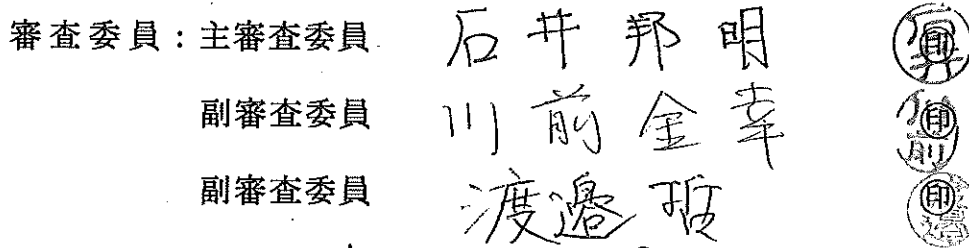 審査委員：主審査委員 石井邦明 印
副審査委員 川前金幸 印
副審査委員 渡邉哲 印